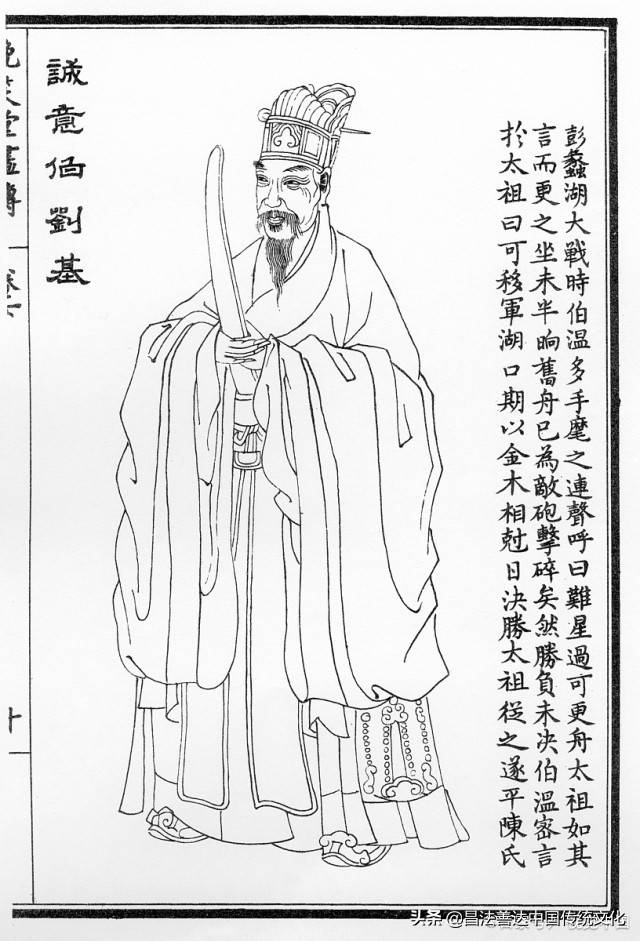 彭蠡湖大戰時伯溫多手麾之連聲呼曰難星過可更舟太祖如其
言而更之坐未半晌舊舟已為敵砲擊碎矣然勝負未决伯溫密言
扵太祖曰可移軍湖口期以金木相尅日决勝太祖從之遂平陳氏
誠意伯劉基
十
头条 @昌法善达中国传统文化